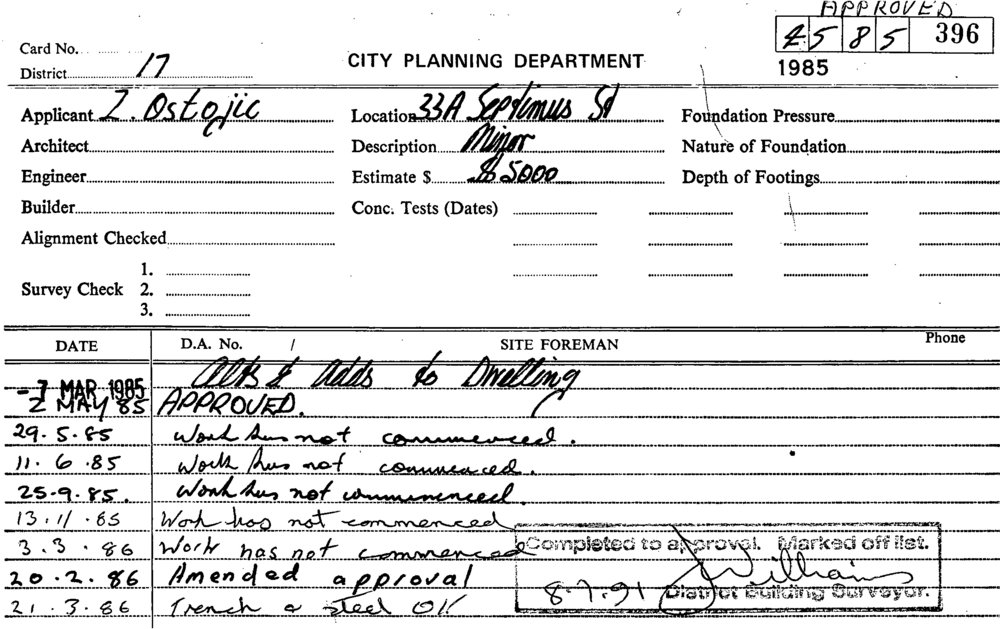 APPROVED
Card No.
45 85 396
District 17
CITY PLANNING DEPARTMENT
1985
Applicant Z. Ostojic
Location 33A Septimus St
Foundation Pressure
Architect
Description Minor
Nature of Foundation
Engineer
Estimate $ $5000
Depth of Footings
Builder
Conc. Tests (Dates)
Alignment Checked
1.
Survey Check 2.
3.
DATE D.A. No. / SITE FOREMAN Phone
- 7 MAR 1985 Alts & Adds to Dwelling
2 MAY 85 APPROVED.
29.5.85 Work has not commenced.
11.6.85 Work has not commenced.
25.9.85. Work has not commenced.
13.11.85 Work has not commenced
3.3.86 Work has not commenced
Completed to approval. Marked off list.
20.2.86 Amended approval
Williams
8.7.91 District Building Surveyor.
21.3.86 Trench & steel OK